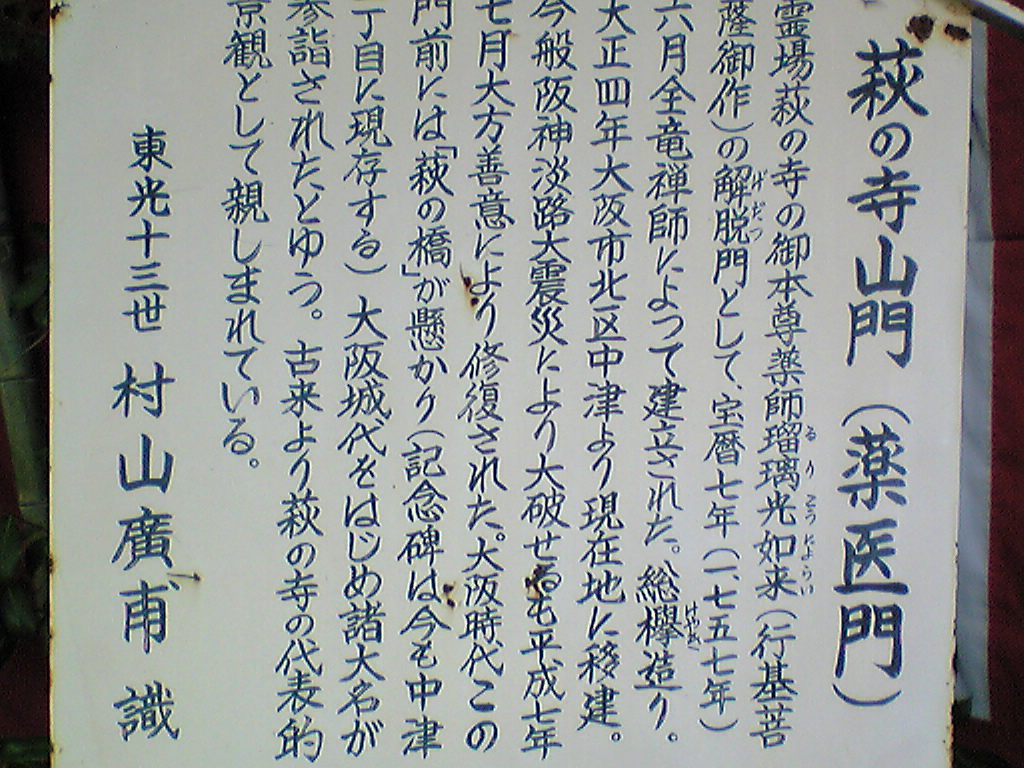 萩の寺山門（薬医門）
霊場萩の寺の御本尊薬師瑠璃光如来（行基菩
薩御作）の解脱門として、宝暦七年（一、七五七年）
六月全竜禅師によって建立された。総欅造り。
大正四年大阪市北区中津より現在地に移建。
今般阪神淡路大震災により大破せるも平成七年
七月大方善意により修復された。大阪時代この
門前には「萩の橋」が懸かり（記念碑は今も中津
丁目に現存する）大阪城代をはじめ諸大名が
参詣されたとゆう。古来より萩の寺の代表的
景観として親しまれている。
東光十三世 村山廣甫 識